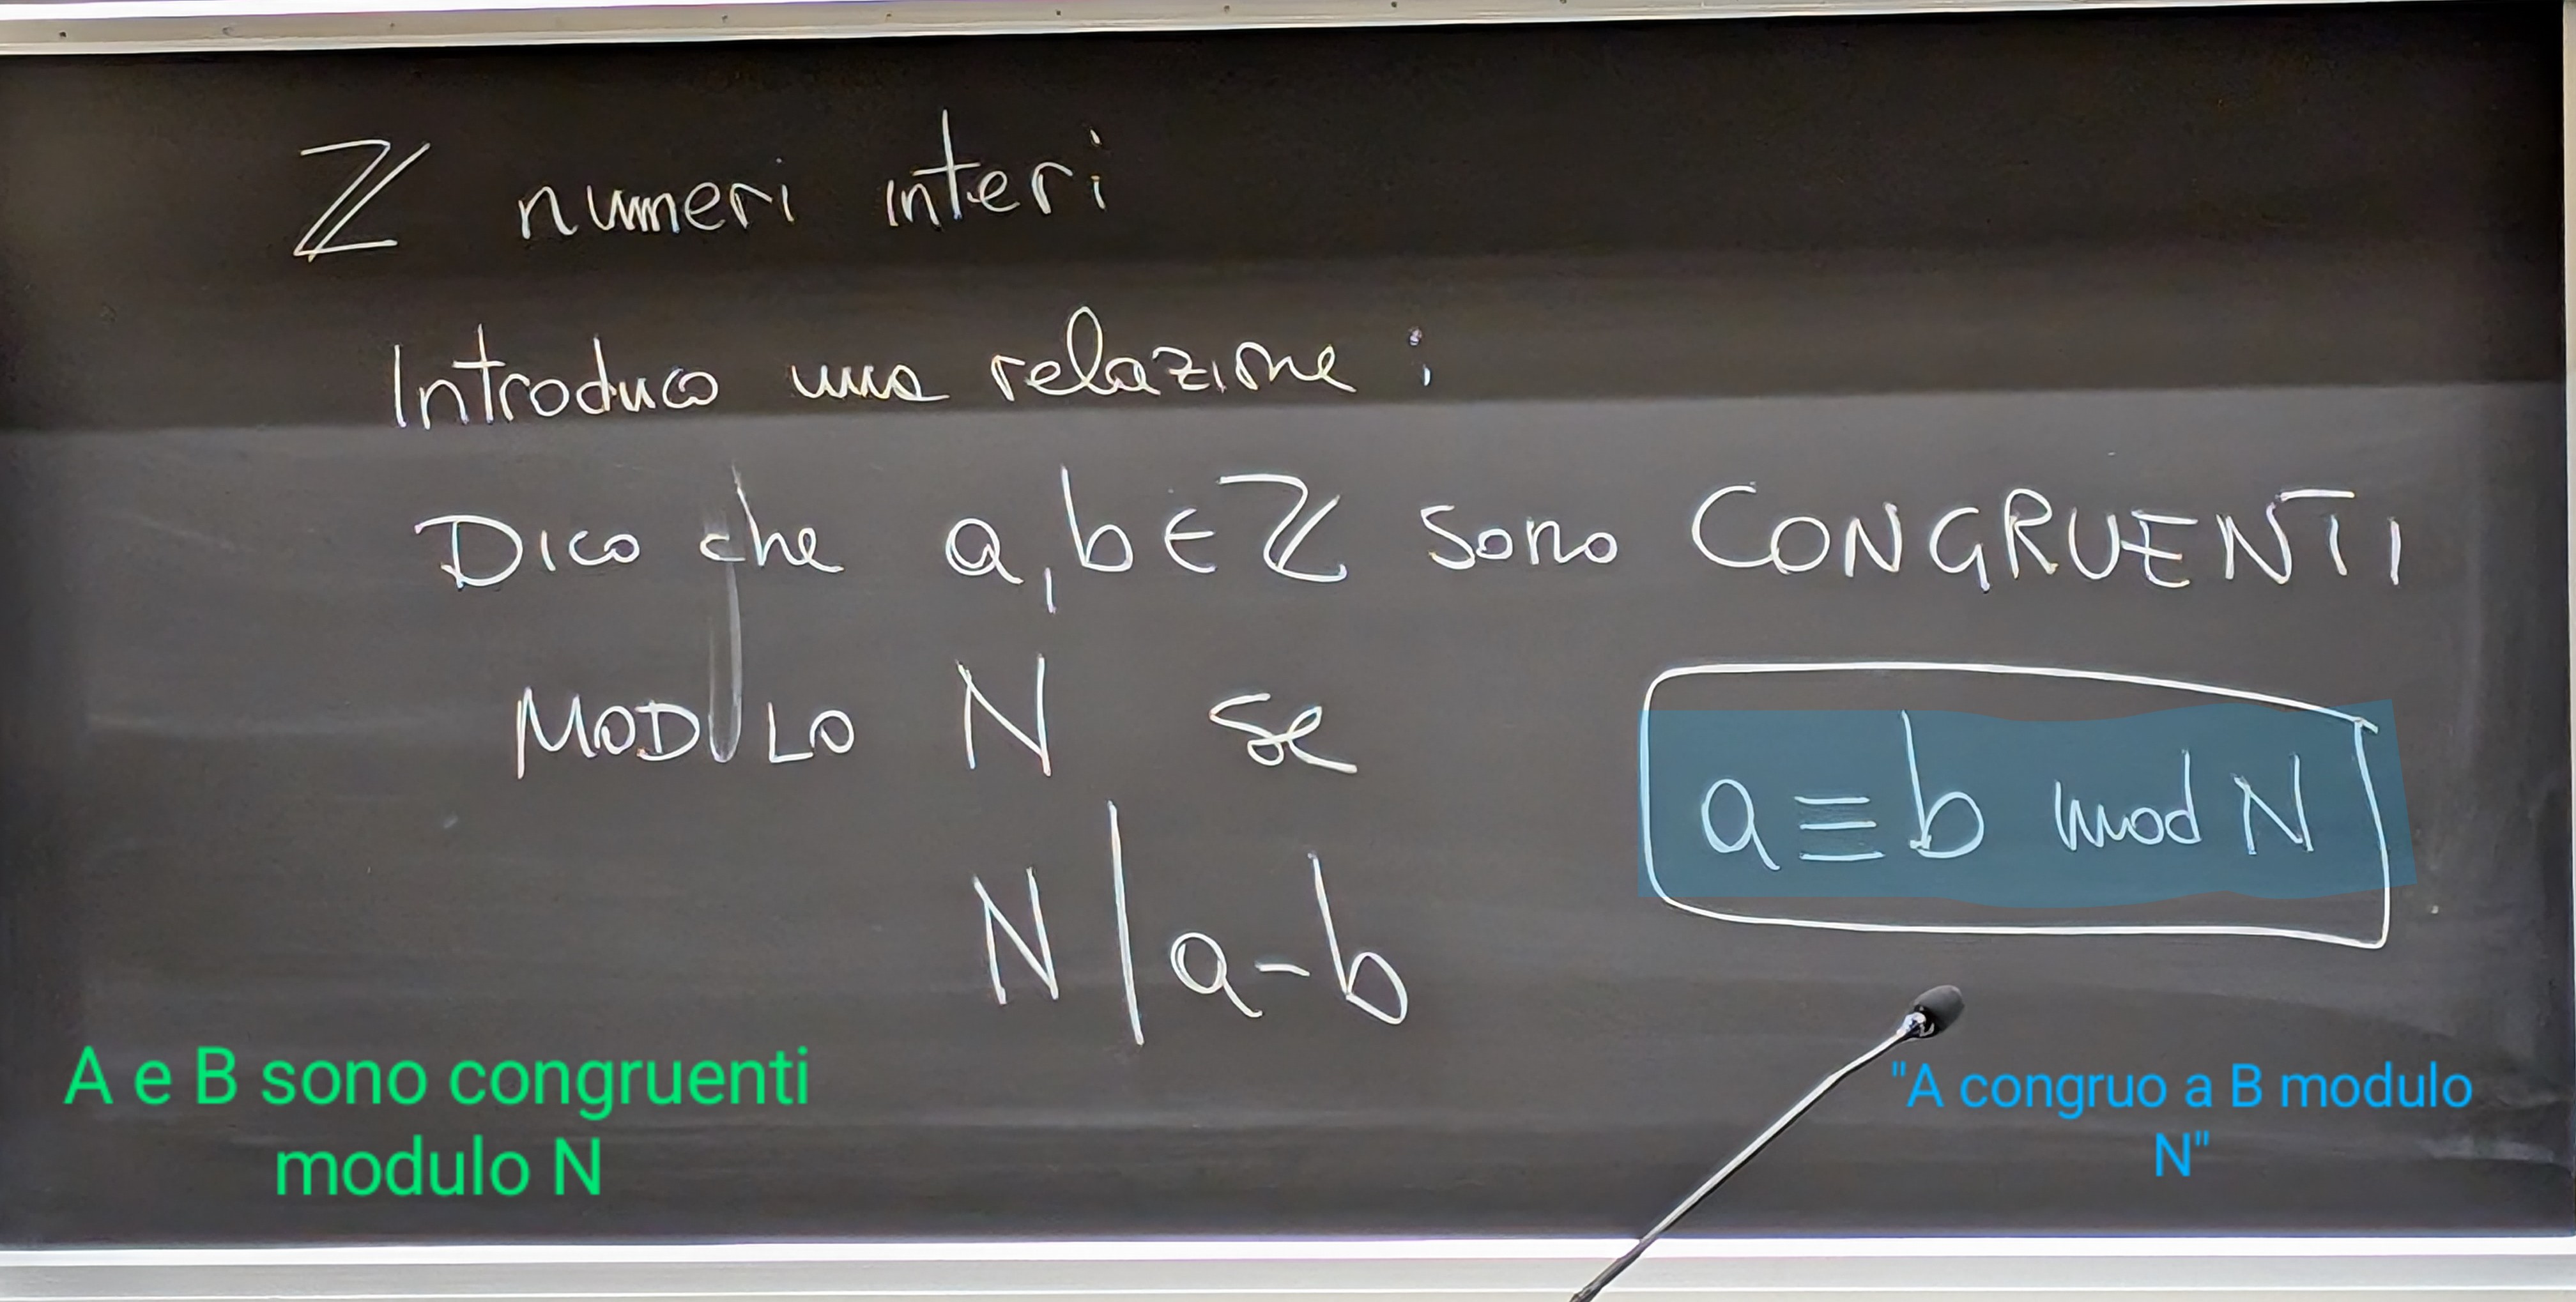 ℤ numeri interi
Introduco una relazione :
Dico che a, b ∈ ℤ sono CONGRUENTI
MODULO N se
a ≡ b mod N
N | a - b
A e B sono congruenti
modulo N
"A congruo a B modulo
N"